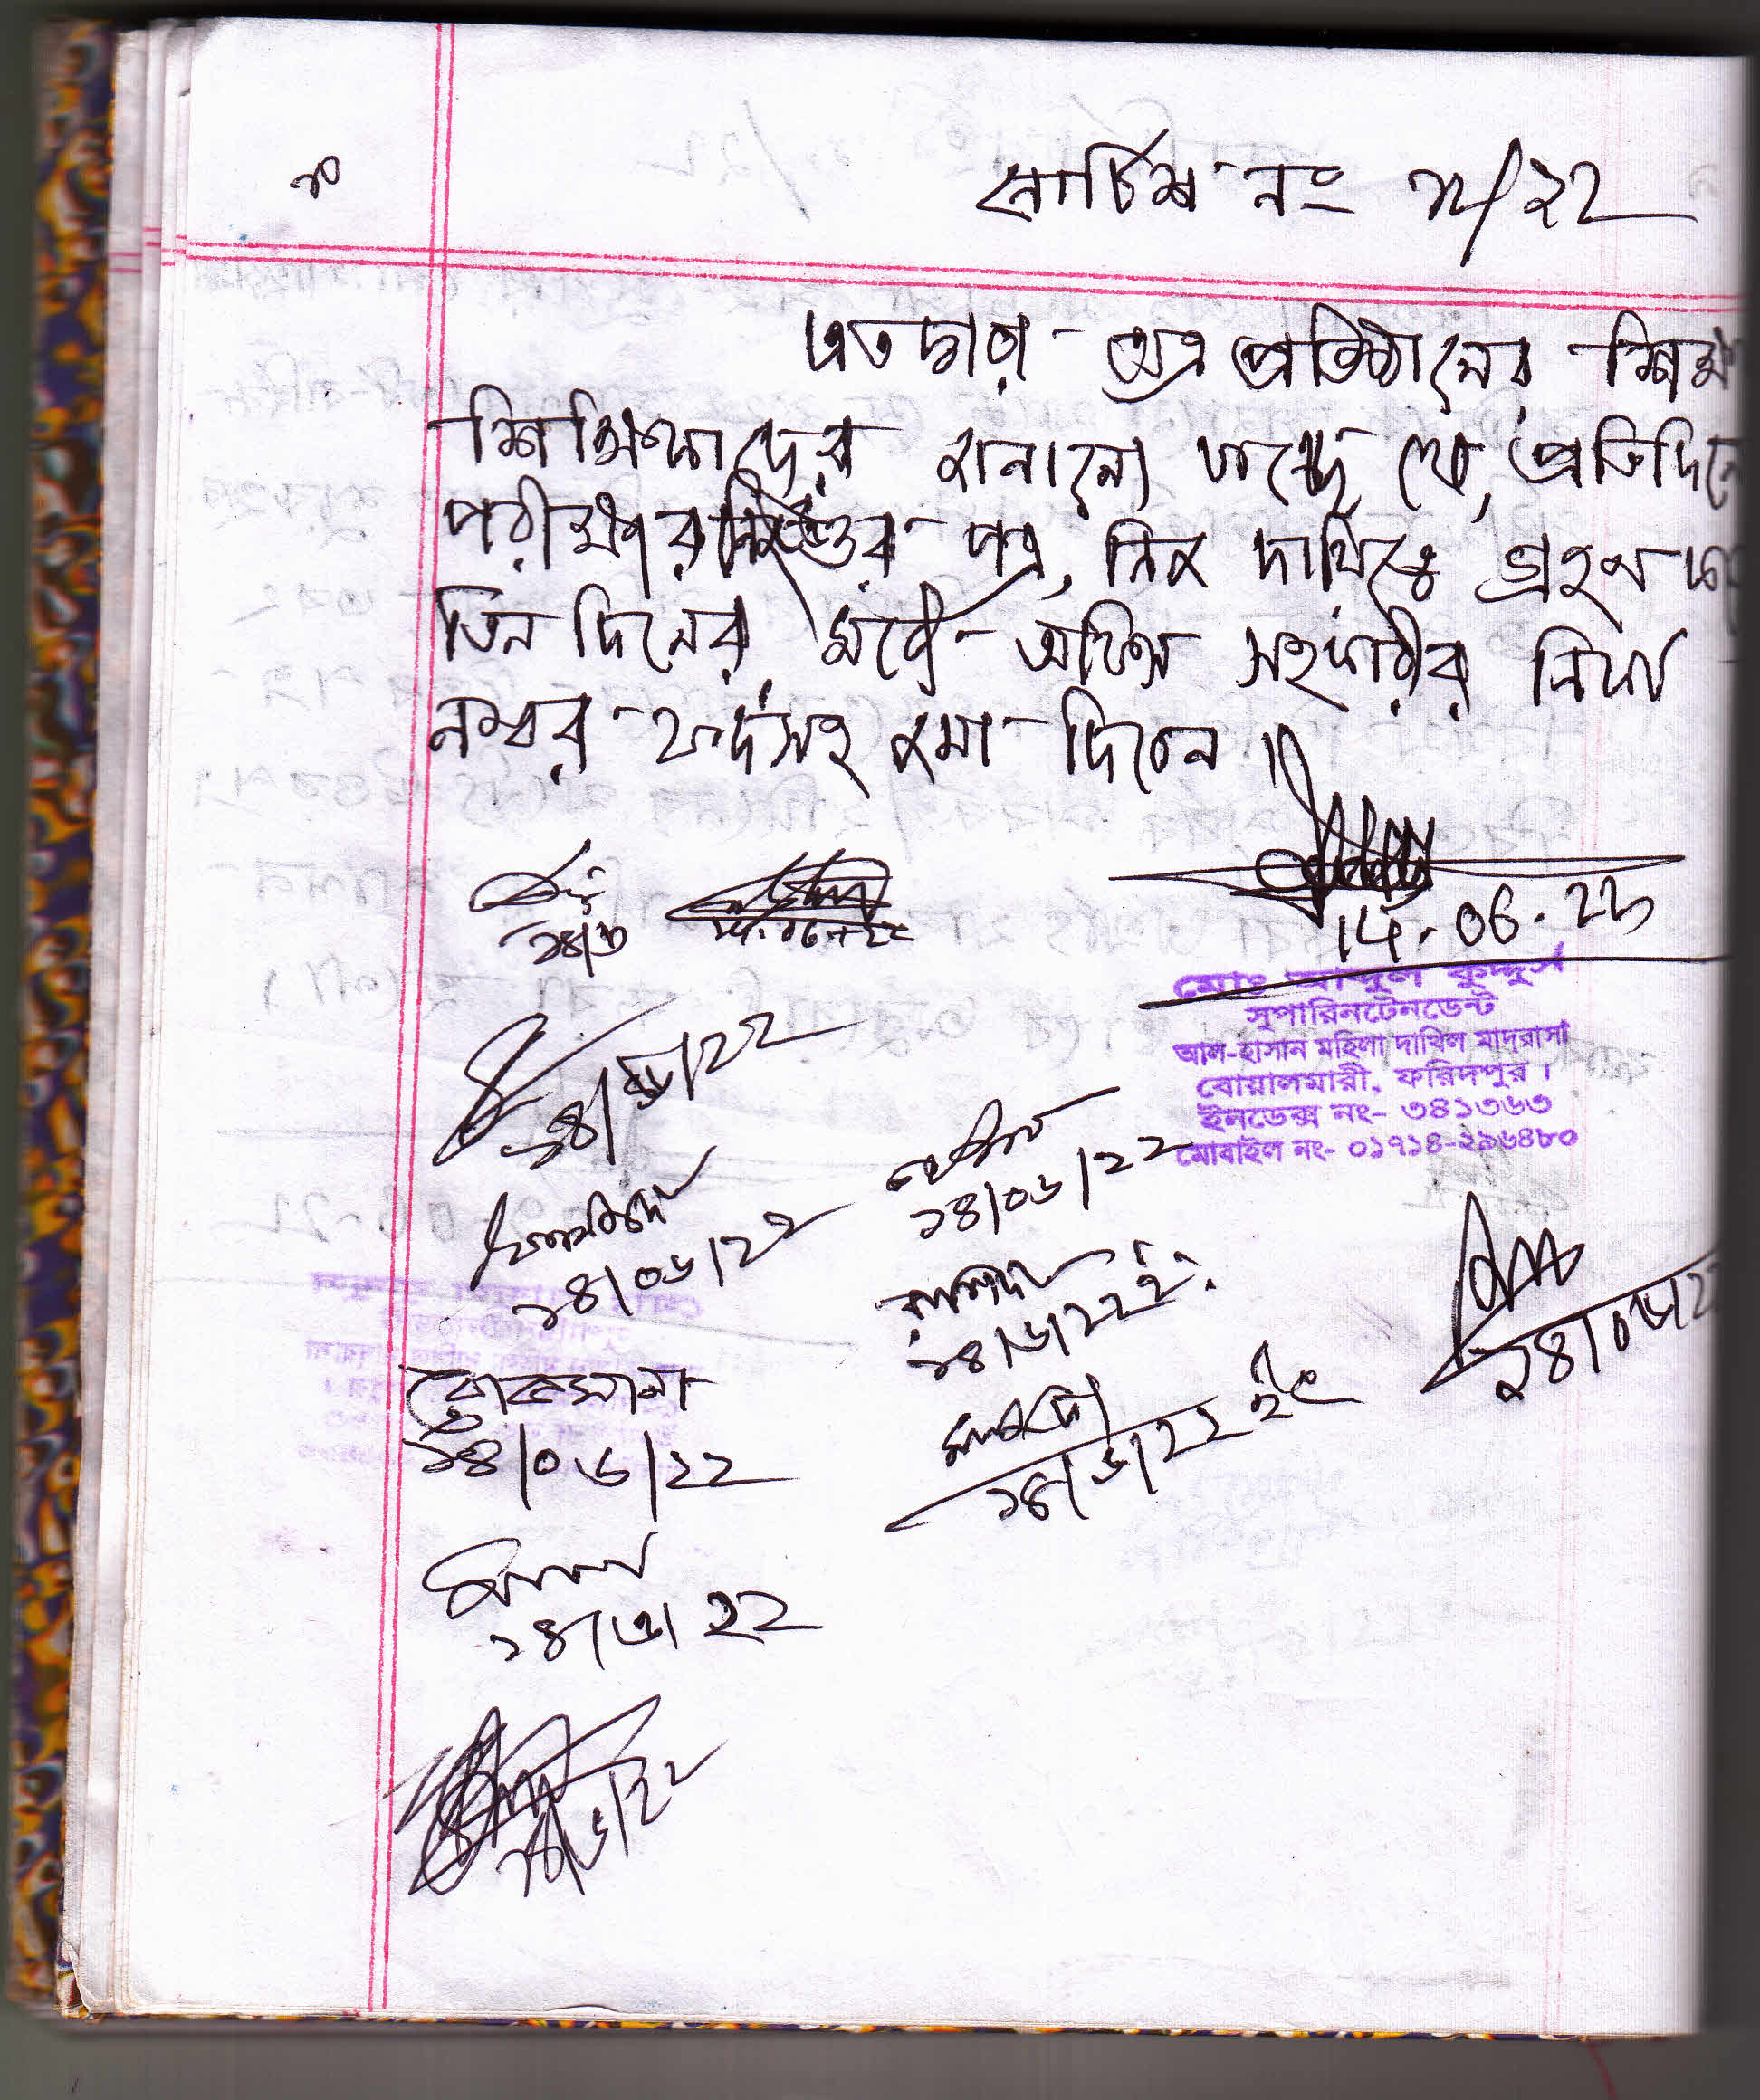 ১০
নোটিশ নং ১১/২২
এতদ্বারা অত্র প্রতিষ্ঠানের শিক্ষক
শিক্ষিকাদের জানানো যাচ্ছে যে, প্রতিদিনের
পরীক্ষার উত্তর পত্র, নিজ দায়িত্বে গ্রহন করে
তিন দিনের মধ্যে অফিস সহকারীর নিকট
নম্বর ফর্দসহ জমা দিবেন।
14.06.22
মোঃ আব্দুল কুদ্দুস
সুপারিনটেনডেন্ট
আল-হাসান মহিলা দাখিল মাদ্রাসা
বোয়ালমারী, ফরিদপুর।
ইনডেক্স নং- ৩৪১৩৬৩
মোবাইল নং- ০১৭১৪-২৯৬৪৮০
১৪/৬
১৪/৬/২২
১৪/০৬/২২
১৪/০৬/২২
১৪/৬/২২ ইং
১৪/০৬/২২
রোকসানা
১৪/০৬/২২
১৪/৬/২২ ইং
১৪/৬/২২
১৪/৬/২২